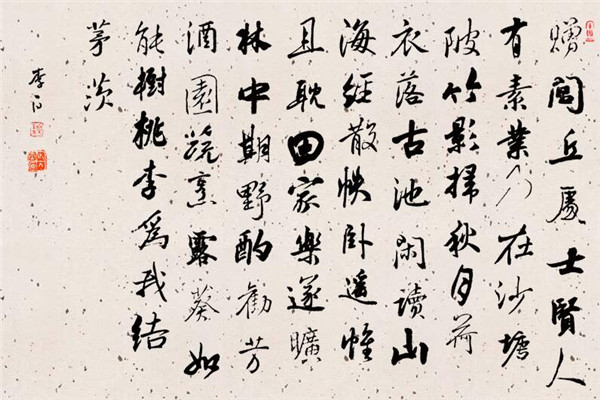 贈閭丘處士賢人
有素業乃在沙塘
陂竹影掃秋月荷
衣落古池閑讀山
海經散帙卧遥帷
且耽田家樂遂曠
林中期野酌勸芳
酒園蔬烹露葵如
能樹桃李爲我結
茅茨
李白